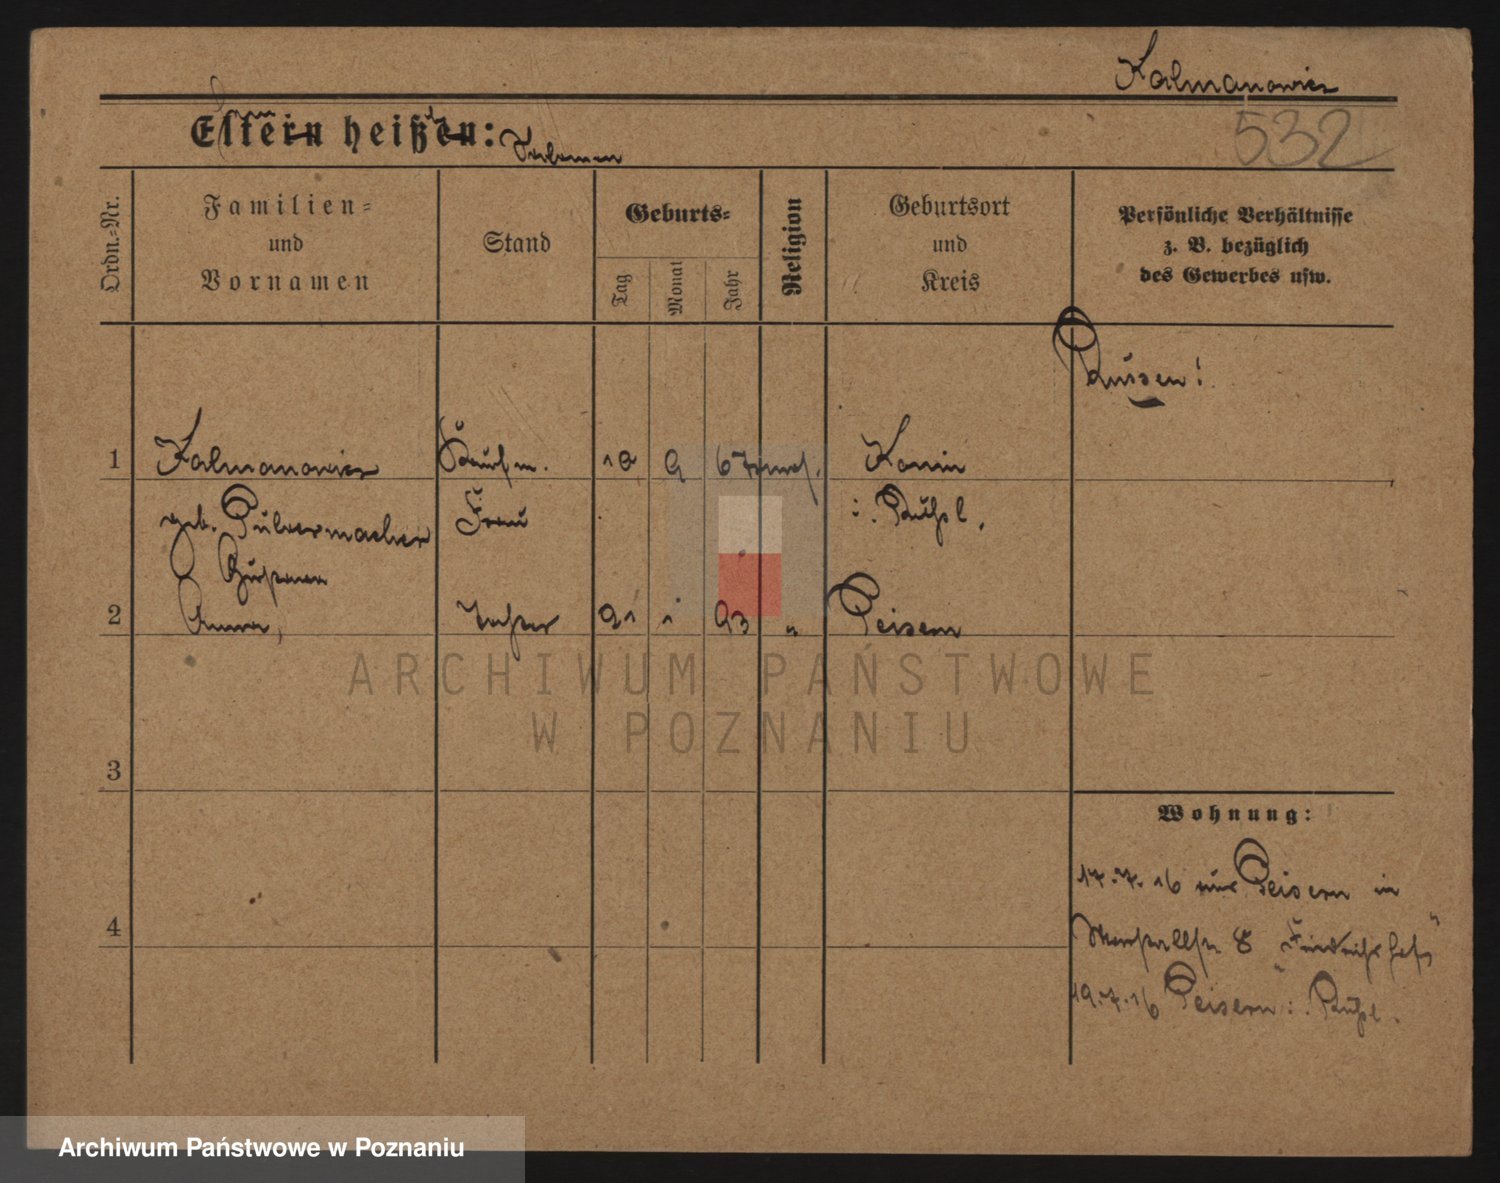 Kalmanowicz
532
Eltern heißen:
Ordn.-Nr.
Familien-
und
Vornamen
Stand
Geburts-
Tag
Monat
Jahr
Religion
Geburtsort
und
Kreis
Persönliche Verhältnisse
z. B. bezüglich
des Gewerbes usw.
Russen!
1 Kalmanowicz Kaufm. 10 9 67 mos. Konin
geb. Pulvermacher Frau i. Rußl.
2 Anna, Tochter 21 1 93 " Peisern
ARCHIWUM PAŃSTWOWE
W POZNANIU
3
Wohnung:
17.7.16 aus Peisern in
4
8 "Friedrichshof"
19.7.16 Peisern i. Rußl.
Archiwum Państwowe w Poznaniu